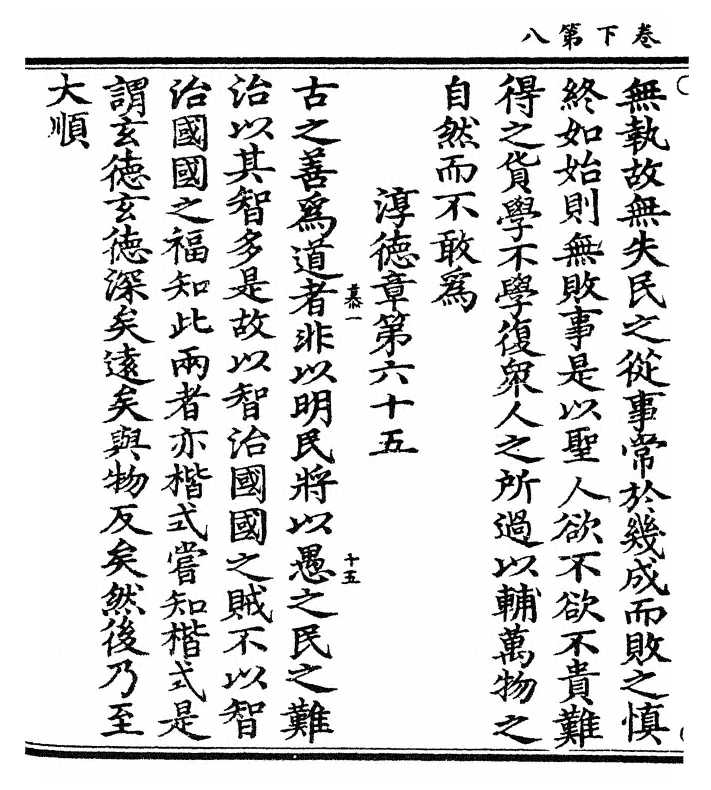 卷下第八
無執故無失民之從事常於幾成而敗之慎
終如始則無敗事是以聖人欲不欲不貴難
得之貨學不學復衆人之所過以輔萬物之
自然而不敢爲
淳德章第六十五
古之善爲道者非以明民將以愚之民之難
慕一
十五
治以其智多是故以智治國國之賊不以智
治國國之福知此兩者亦楷式嘗知楷式是
謂玄德玄德深矣遠矣與物反矣然後乃至
大順